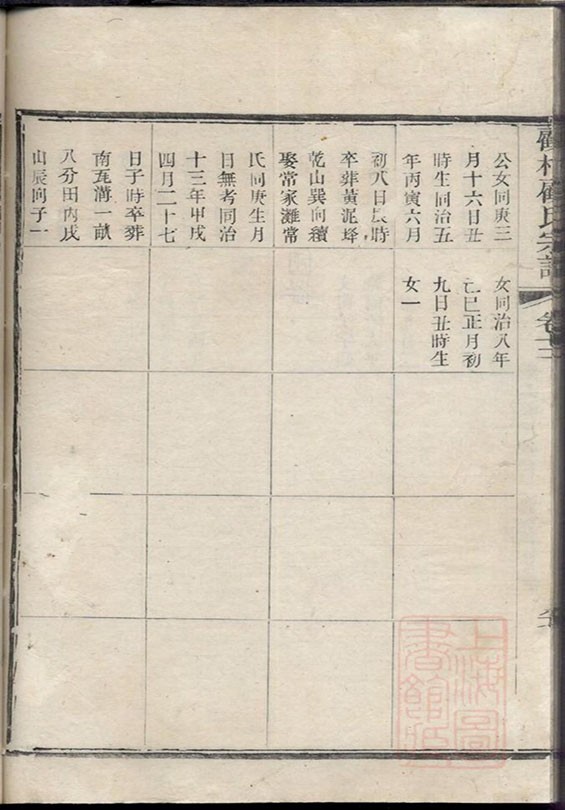 公女同庚三
月十六日丑
時生同治五
年丙寅六月
初八日辰時
卒葬黃泥垾
乾山巽向續
娶常家灘常
氏同庚生月
日無考同治
十三年甲戌
四月二十七
日子時卒葬
南瓦溝一畝
八分田內戌
山辰向子一
女同治八年
己巳正月初
九日丑時生
女一
顧氏宗譜
卷十二
上海圖
書館藏